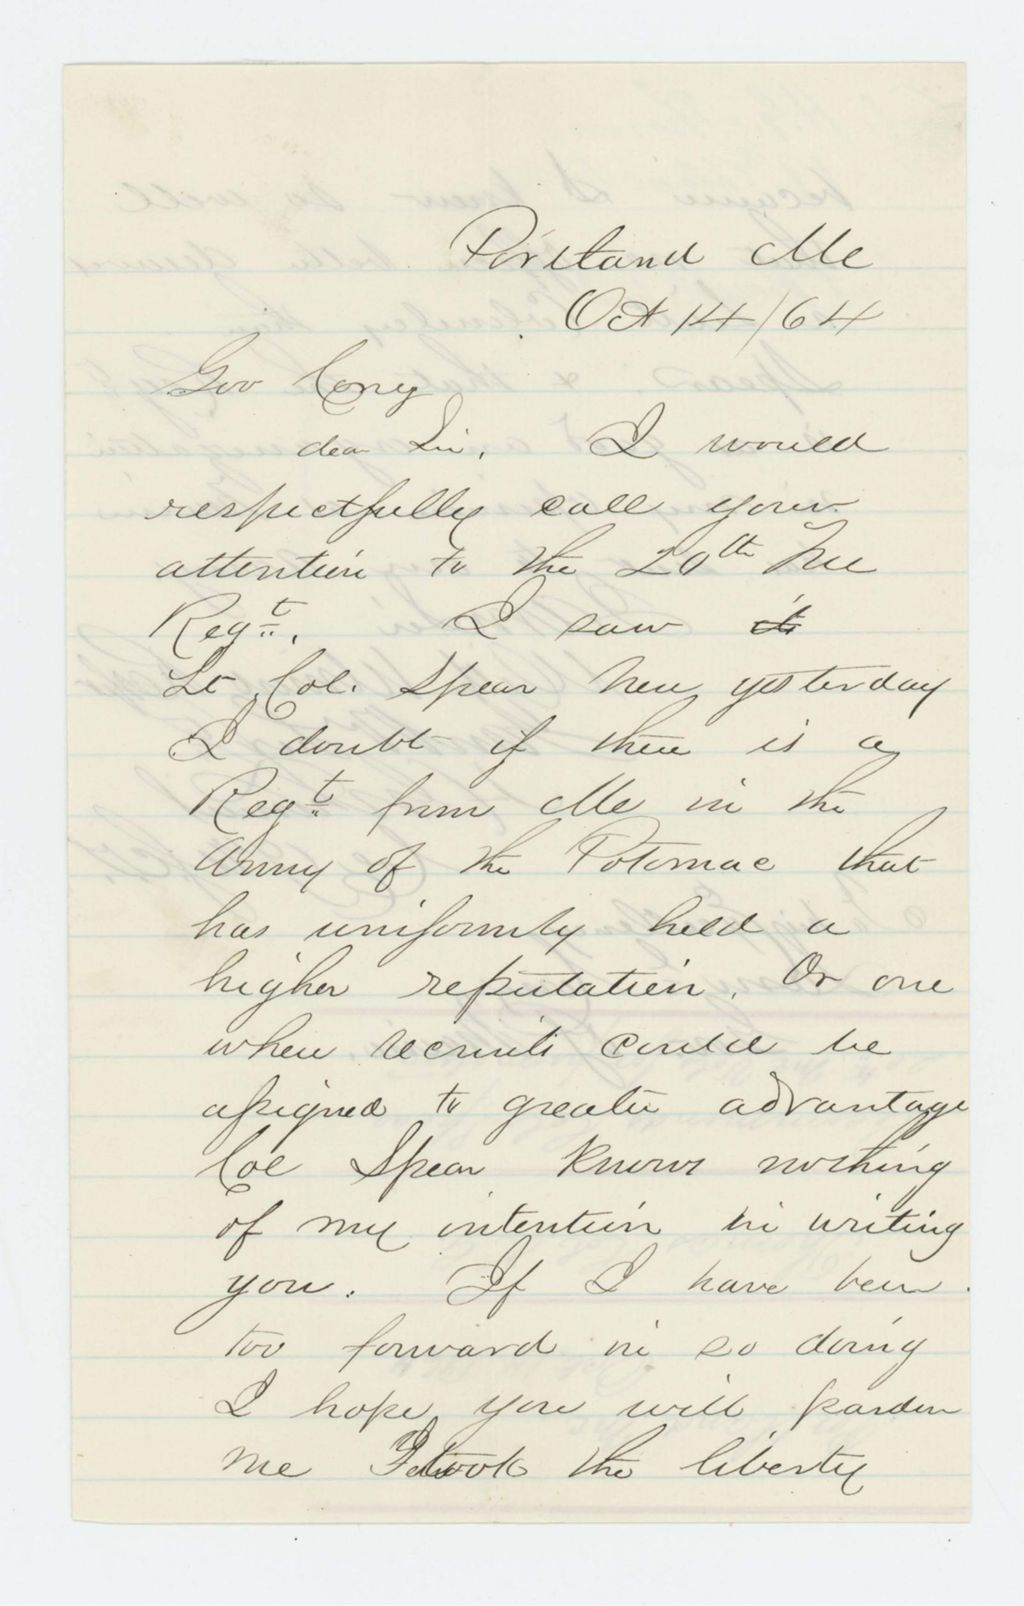 Portland Me
Oct 14/64
Gov Cony
dear Sir. I would
respectfully call your
attention to the 20th Me
Regt. I saw it
Lt Col. Spear here yesterday
I doubt if there is a
Regt from Me in the
Army of the Potomac that
has uniformly held a
higher reputation. Or one
where recruits could be
assigned to greater advantage
Col Spear knows nothing
of my intention in writing
you. If I have been
too forward in so doing
I hope you will pardon
me I took the liberty